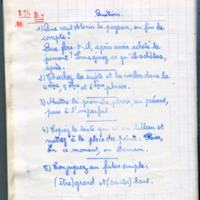 Questions.
1) Que veut obtenir le paysan, en fin de
compte?
Que fera-t-il, après avoir acheté le
? Imaginez ce qu'il achètera,
après.
2) Cherchez les sujets et les verbes dans la
5ème et 6ème phrase.
3) Mettre la première phrase au présent,
puis à l'imparfait
4) Copiez le texte qui est au tableau et
mettez à la place des points: Hier,
En ce moment, ou Demain.
5) Conjuguez au futur simple:
(être) grand et (sauter) haut.